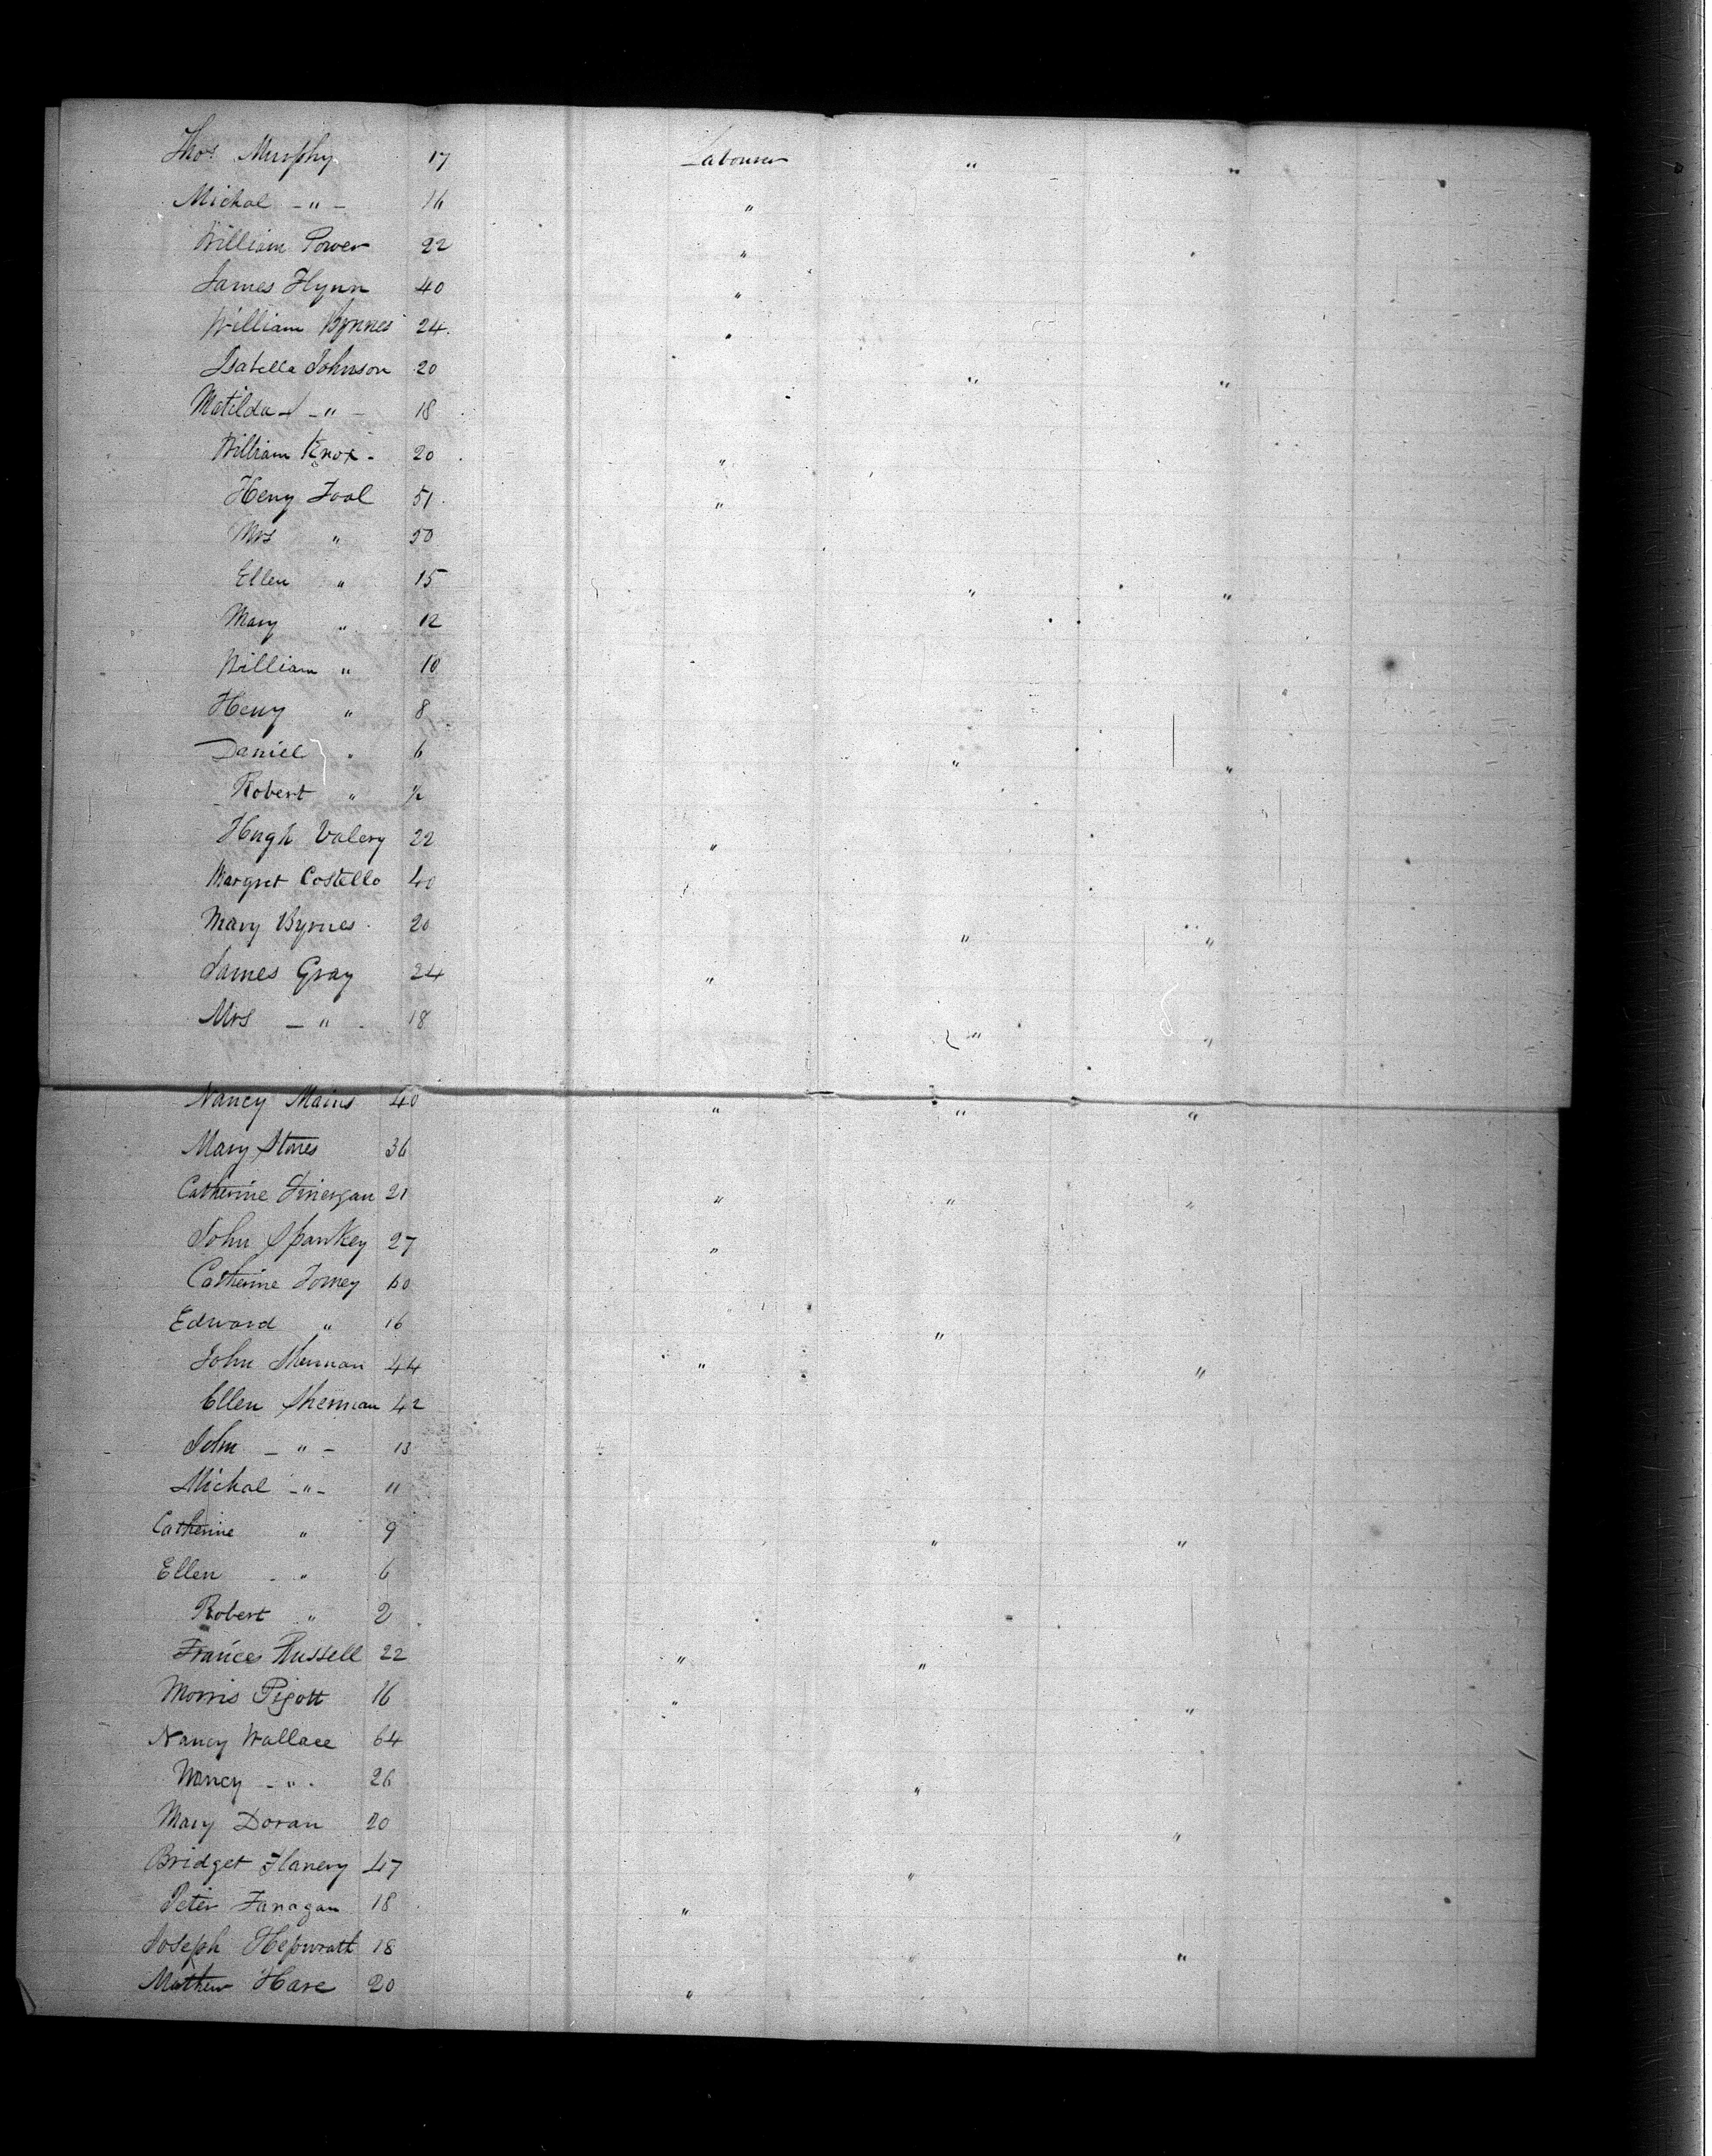 Thos Murphy 17 Labourer " "
Michal - " - 16 "
William Power 22 "
James Flynn 40 "
William Byrnes 24 "
Isabella Johnson 20 " "
Matilda - " - 18
William Knox 20 "
Heny Tool 51 "
Mrs " 50
Ellen " 15 " "
Mary " 12
William " 10
Heny " 8
Daniel " 6 " "
Robert " 1/2
Hugh Valery 22 "
Margret Costello 40
Mary Byrnes 20 " "
James Gray 24 "
Mrs - " 18 " "
Nancy Mains 40 " " "
Mary Stones 36
Catherine Finergan 21 " " "
John Spankey 27 "
Catherine 60
Edward " 16 "
John Sherman 44 " "
Ellen Sherman 42
John - " - 13
Michal - " - 11
Catherine " 9 " "
Ellen " 6
Robert " 2
Frances Russell 22 " "
Morris Pigott 16 " "
Nancy Wallace 64
Nancy - " 26 "
Mary Doran 20 "
Bridget Flanery 47 "
Peter Fanagan 18 "
Joseph Hepwratt 18 " "
Mathew Hare 20 "